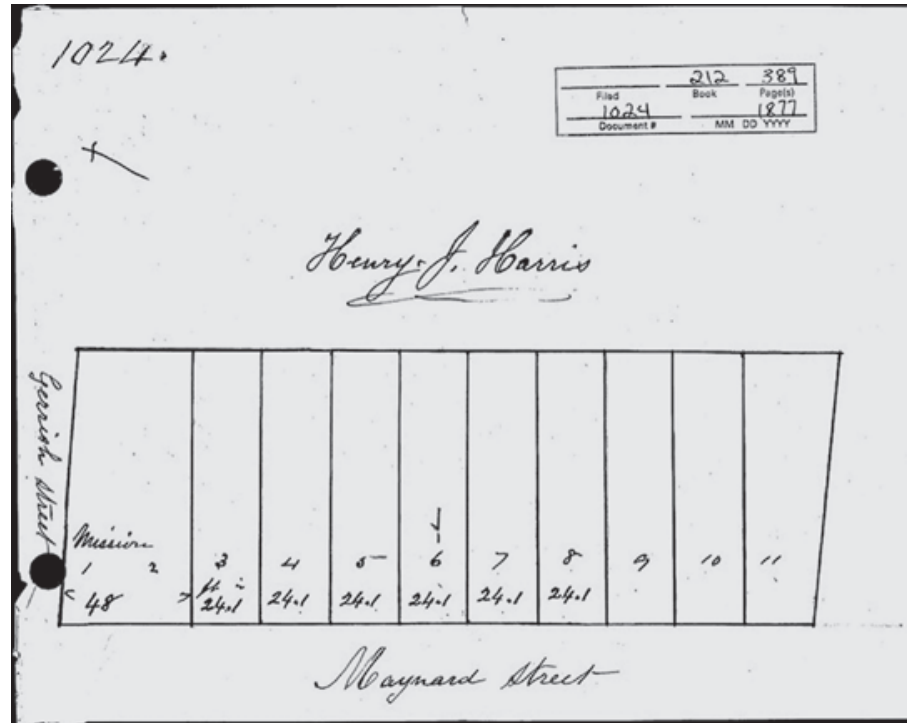 1024.
212 389
Filed Book Page(s)
1024 1877
Document # MM DD YYYY
Henry. J. Harris
Gerrish Street
Mission
1 2 3 4 5 6 7 8 9 10 11
ft in
48 24.1 24.1 24.1 24.1 24.1 24.1
Maynard Street